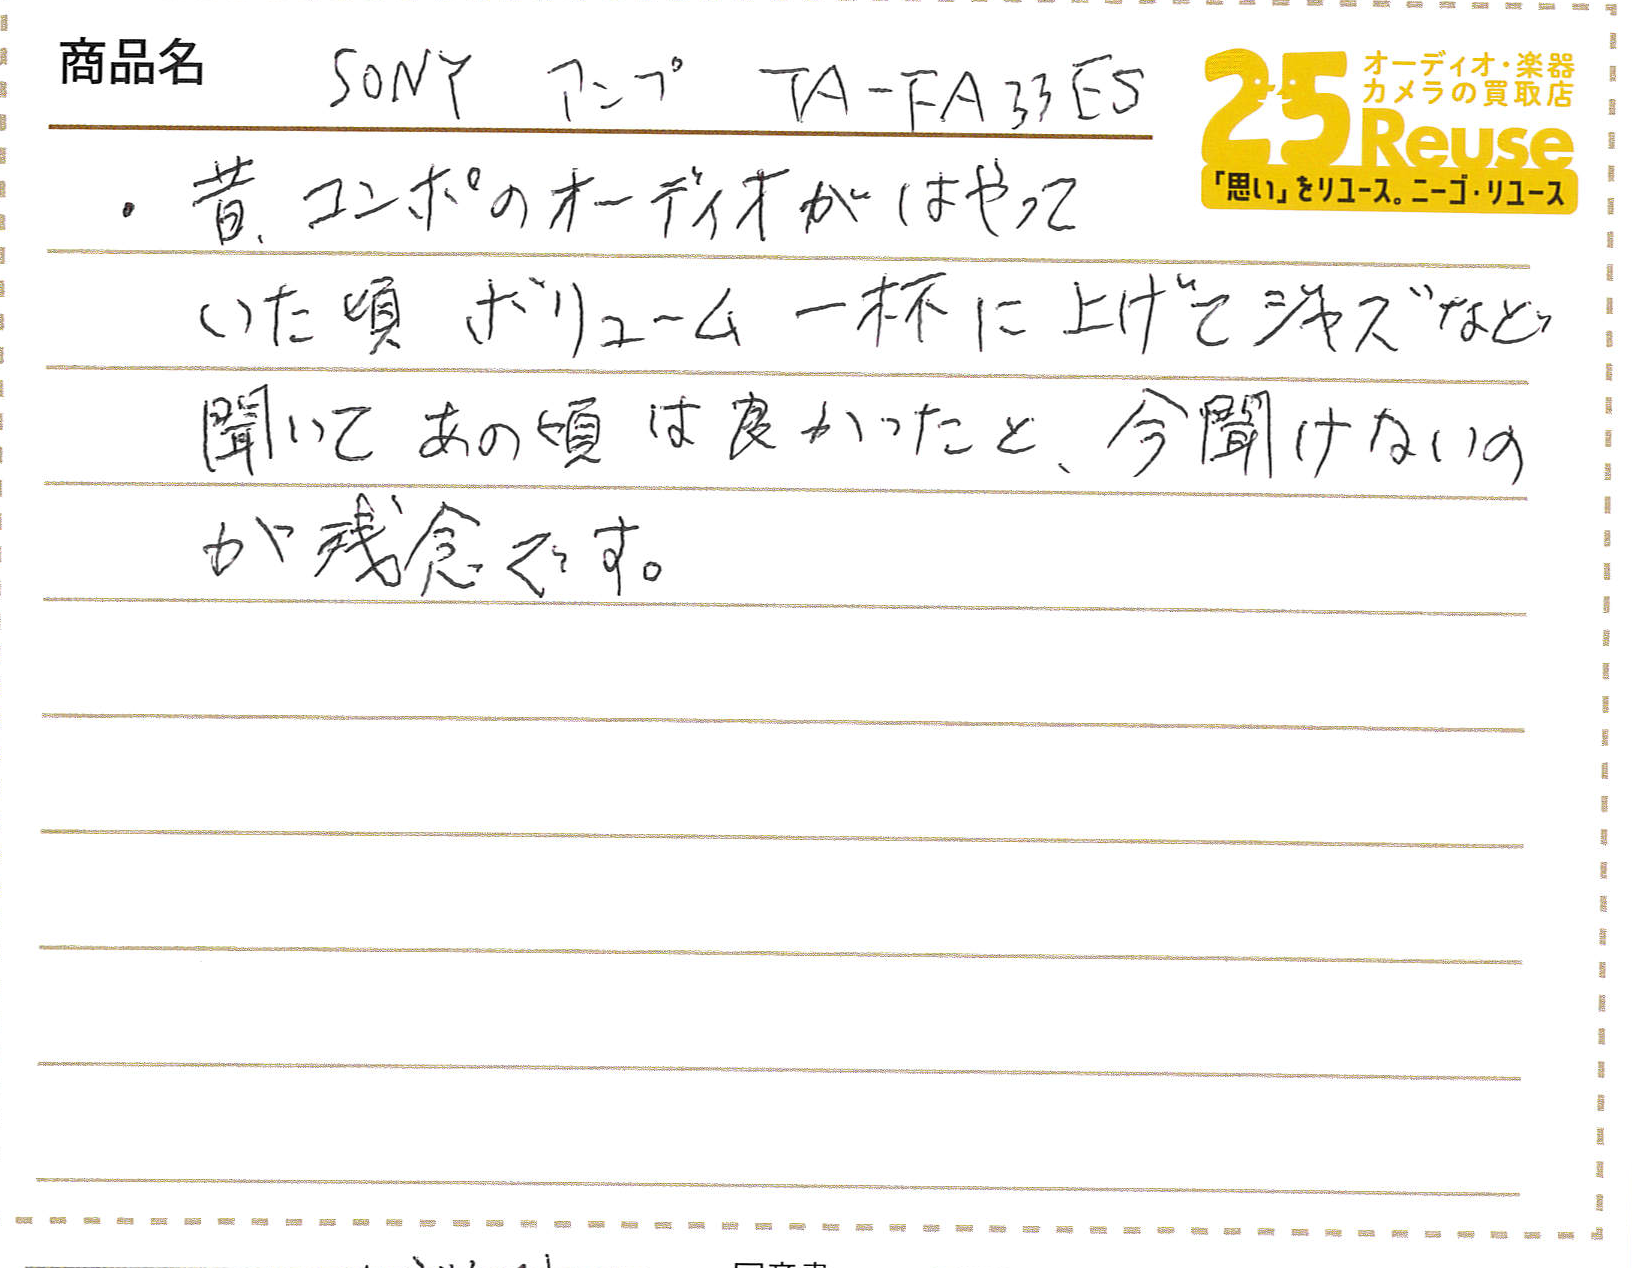 商品名 SONY アンプ TA-FA33ES
25 Reuse
オーディオ・楽器
カメラの買取店
「思い」をリユース。ニーゴ・リユース
・昔、コンポのオーディオがはやって
いた頃 ボリューム一杯に上げてジャズなど
聞いてあの頃は良かったと、今聞けないの
が残念です。